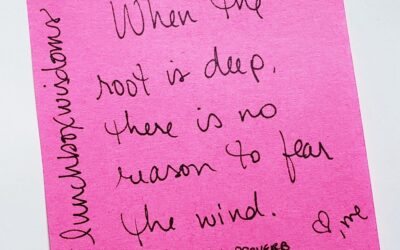 When the
root is deep,
there is no
reason to fear
the wind.
PROVERB
♡, me
lunchboxwisdoms